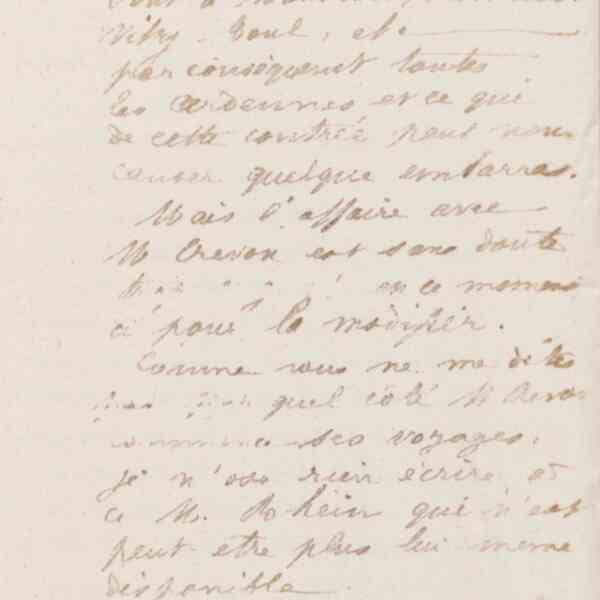 Vitry - Toul, etc
par conséquent toutes
les Ardennes et ce qui
de cette contrée peut nous
causer quelque embarras.
Mais l'affaire avec
M Crevon est sans doute
en ce moment
ci pour la modifier.
Comme vous ne me dites
pas quel côté M
commence ses voyages,
je n'ose rien écrire à
ce M. Rohein qui n'est
peut etre plus lui meme
disponible.